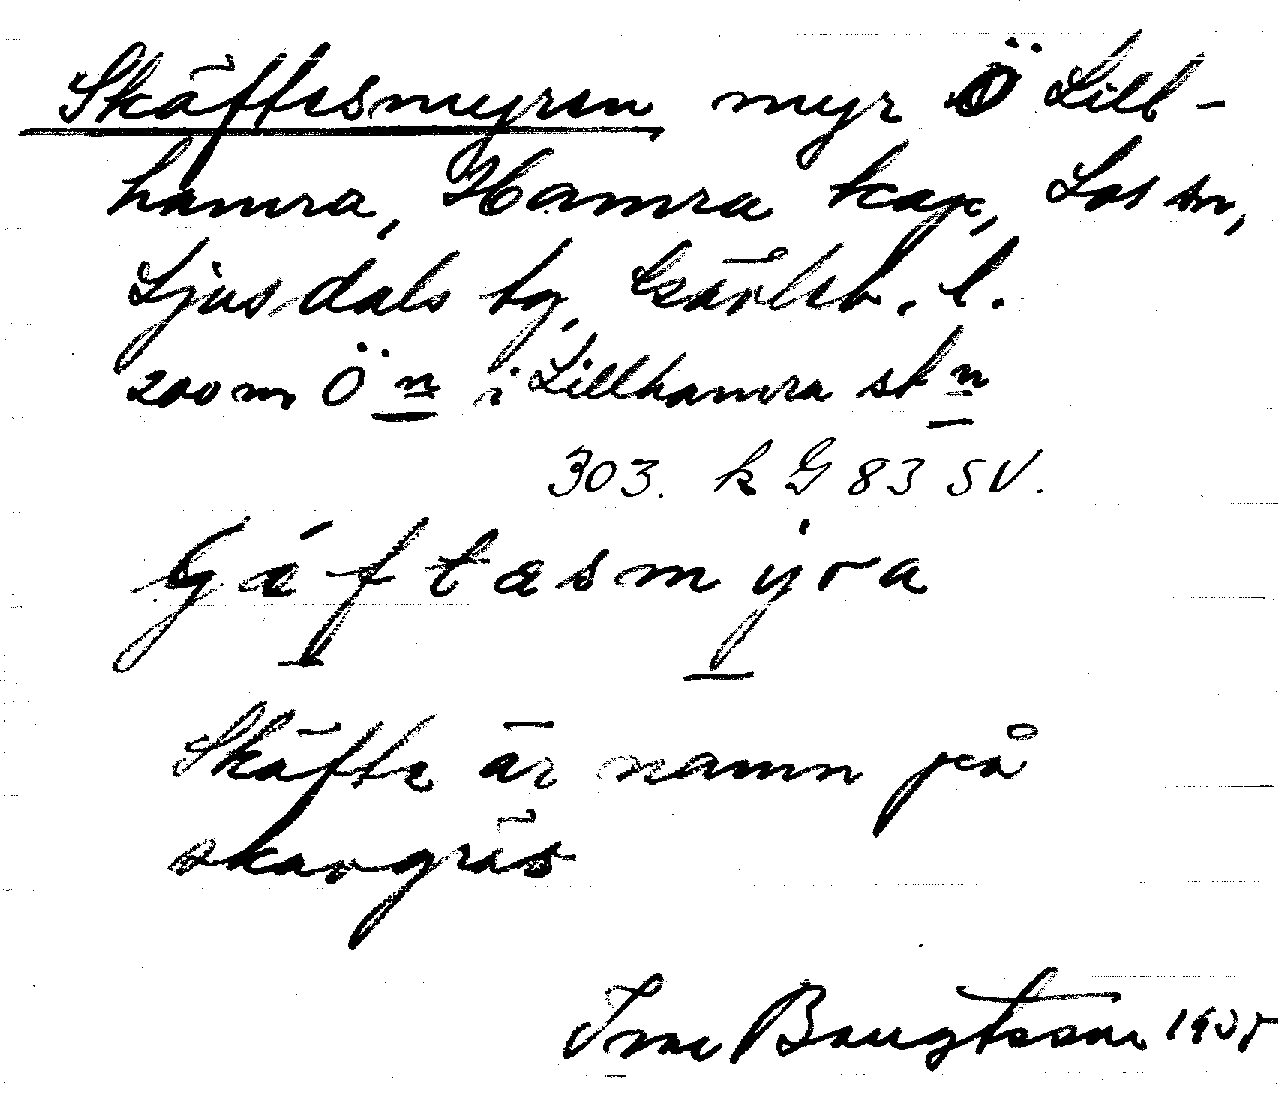 Skäftesmyren myr Ö Lill-
hamra, Hamra kap, Los sn,
Ljusdals tg, Gävleb. l.
200 m Ö n i Lillhamra st n
303. k G 83 SV.
Skäfte är namn på
skavgräs
Bengtsson